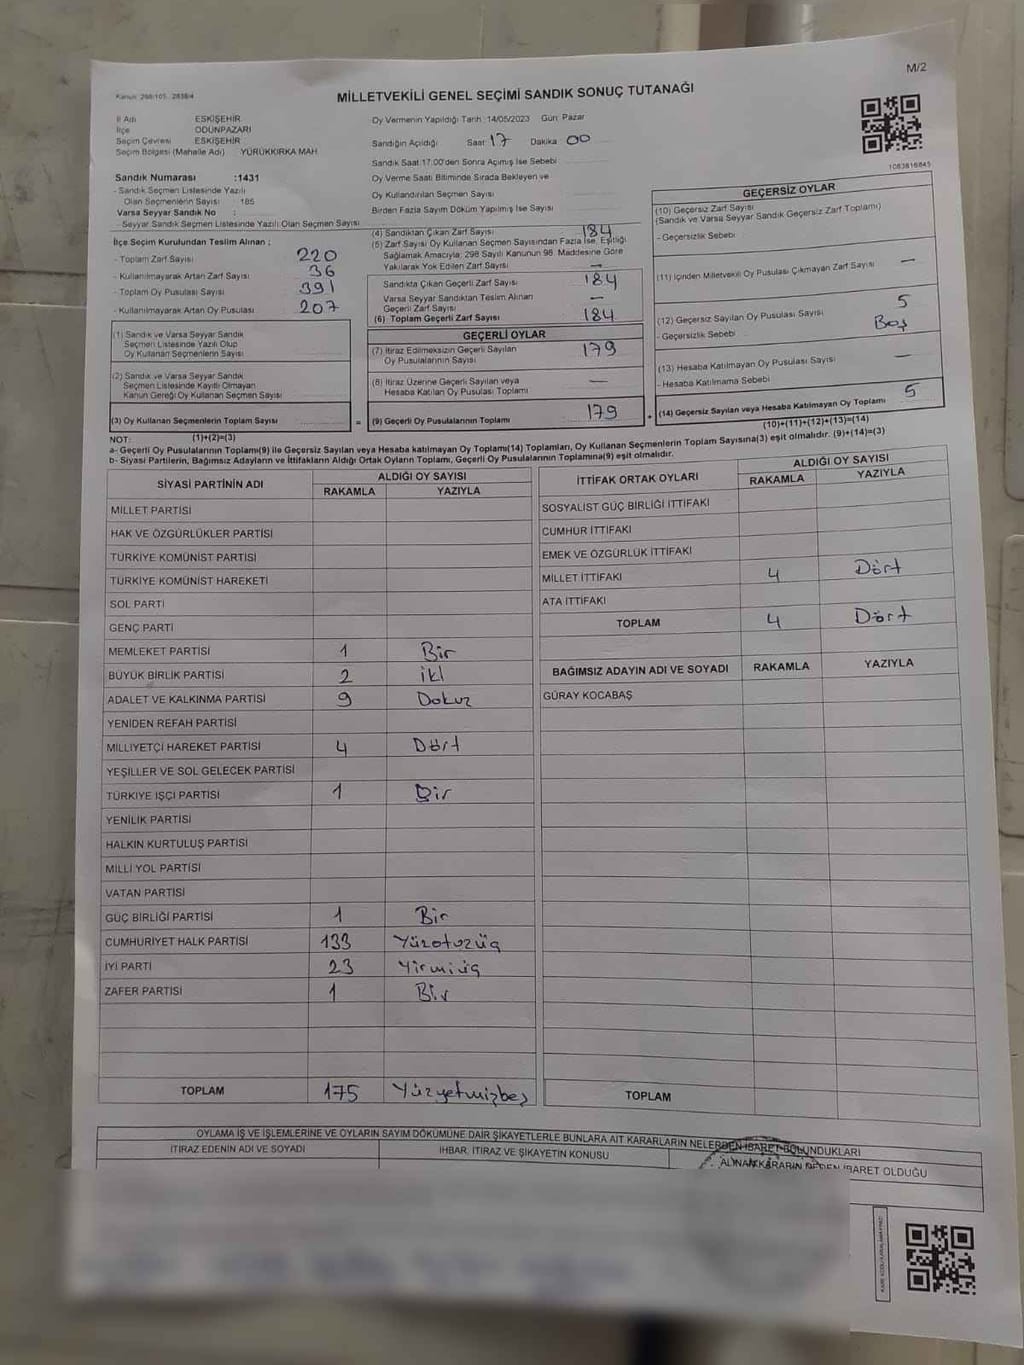 M/2
Kanun: 298/105, 2839/4
MİLLETVEKİLİ GENEL SEÇİMİ SANDIK SONUÇ TUTANAĞI
İl Adı ESKİŞEHİR
İlçe ODUNPAZARI
Seçim Çevresi ESKİŞEHİR
Seçim Bölgesi (Mahalle Adı) YÜRÜKKIRKA MAH.
Sandık Numarası :1431
- Sandık Seçmen Listesinde Yazılı
Olan Seçmenlerin Sayısı 185
Varsa Seyyar Sandık No :
- Seyyar Sandık Seçmen Listesinde Yazılı Olan Seçmen Sayısı
İlçe Seçim Kurulundan Teslim Alınan ;
- Toplam Zarf Sayısı 220
- Kullanılmayarak Artan Zarf Sayısı 36
- Toplam Oy Pusulası Sayısı 391
- Kullanılmayarak Artan Oy Pusulası 207
(1) Sandık ve Varsa Seyyar Sandık
Seçmen Listesinde Yazılı Olup
Oy Kullanan Seçmenlerin Sayısı
(2) Sandık ve Varsa Seyyar Sandık
Seçmen Listesinde Kayıtlı Olmayan
Kanun Gereği Oy Kullanan Seçmen Sayısı
(3) Oy Kullanan Seçmenlerin Toplam Sayısı
(1)+(2)=(3)
Oy Vermenin Yapıldığı Tarih : 14/05/2023 Gün: Pazar
Sandığın Açıldığı Saat 17 Dakika 00
Sandık Saat 17:00'den Sonra Açımış İse Sebebi
Oy Verme Saati Bitiminde Sırada Bekleyen ve
Oy Kullandırılan Seçmen Sayısı
Birden Fazla Sayım Döküm Yapılmış İse Sayısı
(4) Sandıktan Çıkan Zarf Sayısı 184
(5) Zarf Sayısı Oy Kullanan Seçmen Sayısından Fazla İse, Eşitliği
Sağlamak Amacıyla; 298 Sayılı Kanunun 98. Maddesine Göre
Yakılarak Yok Edilen Zarf Sayısı —
Sandıkta Çıkan Geçerli Zarf Sayısı 184
Varsa Seyyar Sandıktan Teslim Alınan
Geçerli Zarf Sayısı —
(6) Toplam Geçerli Zarf Sayısı 184
GEÇERLİ OYLAR
(7) İtiraz Edilmeksizin Geçerli Sayılan
Oy Pusulalarının Sayısı 179
(8) İtiraz Üzerine Geçerli Sayılan veya
Hesaba Katılan Oy Pusulası Toplamı —
= (9) Geçerli Oy Pusulalarının Toplamı 179 +
1083816845
GEÇERSİZ OYLAR
(10) Geçersiz Zarf Sayısı
(Sandık ve Varsa Seyyar Sandık Geçersiz Zarf Toplamı)
- Geçersizlik Sebebi
(11) İçinden Milletvekili Oy Pusulası Çıkmayan Zarf Sayısı —
(12) Geçersiz Sayılan Oy Pusulası Sayısı 5
- Geçersizlik Sebebi Boş
(13) Hesaba Katılmayan Oy Pusulası Sayısı —
- Hesaba Katılmama Sebebi
(14) Geçersiz Sayılan veya Hesaba Katılmayan Oy Toplamı 5
(10)+(11)+(12)+(13)=(14)
NOT:
a- Geçerli Oy Pusulalarının Toplamı(9) ile Geçersiz Sayılan veya Hesaba katılmayan Oy Toplamı(14) Toplamları, Oy Kullanan Seçmenlerin Toplam Sayısına(3) eşit olmalıdır. (9)+(14)=(3)
b- Siyasi Partilerin, Bağımsız Adayların ve İttifakların Aldığı Ortak Oyların Toplamı, Geçerli Oy Pusulalarının Toplamına(9) eşit olmalıdır.
SİYASİ PARTİNİN ADI ALDIĞI OY SAYISI
RAKAMLA YAZIYLA
MİLLET PARTİSİ
HAK VE ÖZGÜRLÜKLER PARTİSİ
TÜRKİYE KOMÜNİST PARTİSİ
TÜRKİYE KOMÜNİST HAREKETİ
SOL PARTİ
GENÇ PARTİ
MEMLEKET PARTİSİ 1 Bir
BÜYÜK BİRLİK PARTİSİ 2 iki
ADALET VE KALKINMA PARTİSİ 9 Dokuz
YENİDEN REFAH PARTİSİ
MİLLİYETÇİ HAREKET PARTİSİ 4 Dört
YEŞİLLER VE SOL GELECEK PARTİSİ
TÜRKİYE İŞÇİ PARTİSİ 1 Bir
YENİLİK PARTİSİ
HALKIN KURTULUŞ PARTİSİ
MİLLİ YOL PARTİSİ
VATAN PARTİSİ
GÜÇ BİRLİĞİ PARTİSİ 1 Bir
CUMHURİYET HALK PARTİSİ 133 Yüzotuzüç
İYİ PARTİ 23 Yirmiüç
ZAFER PARTİSİ 1 Bir
TOPLAM 175 Yüzyetmişbeş
İTTİFAK ORTAK OYLARI ALDIĞI OY SAYISI
RAKAMLA YAZIYLA
SOSYALİST GÜÇ BİRLİĞİ İTTİFAKI
CUMHUR İTTİFAKI
EMEK VE ÖZGÜRLÜK İTTİFAKI
MİLLET İTTİFAKI 4 Dört
ATA İTTİFAKI
TOPLAM 4 Dört
BAĞIMSIZ ADAYIN ADI VE SOYADI RAKAMLA YAZIYLA
GÜRAY KOCABAŞ
TOPLAM
OYLAMA İŞ VE İŞLEMLERİNE VE OYLARIN SAYIM DÖKÜMÜNE DAİR ŞİKAYETLERLE BUNLARA AİT KARARLARIN NELERDEN İBARET BULUNDUKLARI
İTİRAZ EDENİN ADI VE SOYADI İHBAR, İTİRAZ VE ŞİKAYETİN KONUSU ALINAN KARARIN NEDEN İBARET OLDUĞU